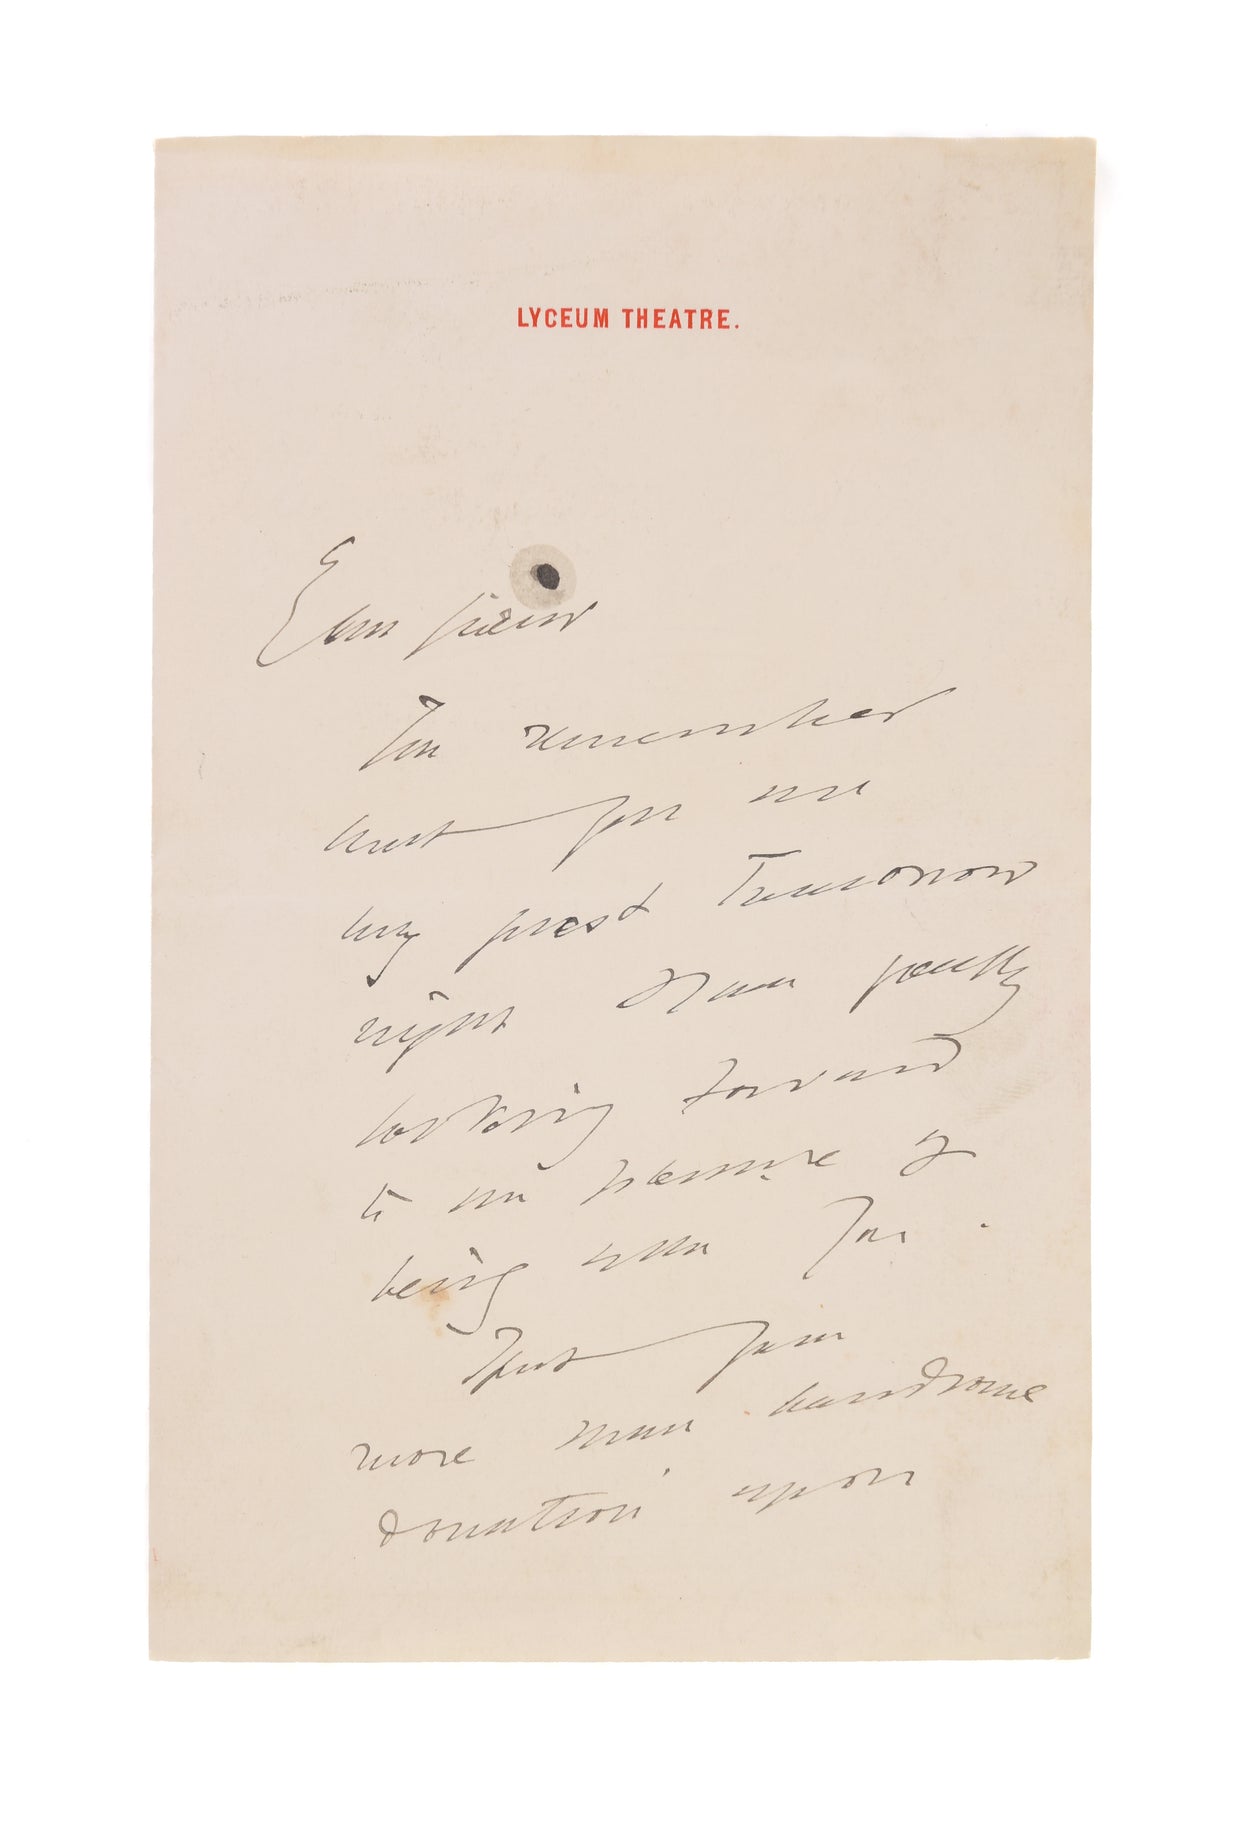 LYCEUM THEATRE.
Dear friend
You remember
that you are
my guest Tomorrow
night I am greatly
looking forward
to the pleasure of
being with you.
But your
more than handsome
donation upon